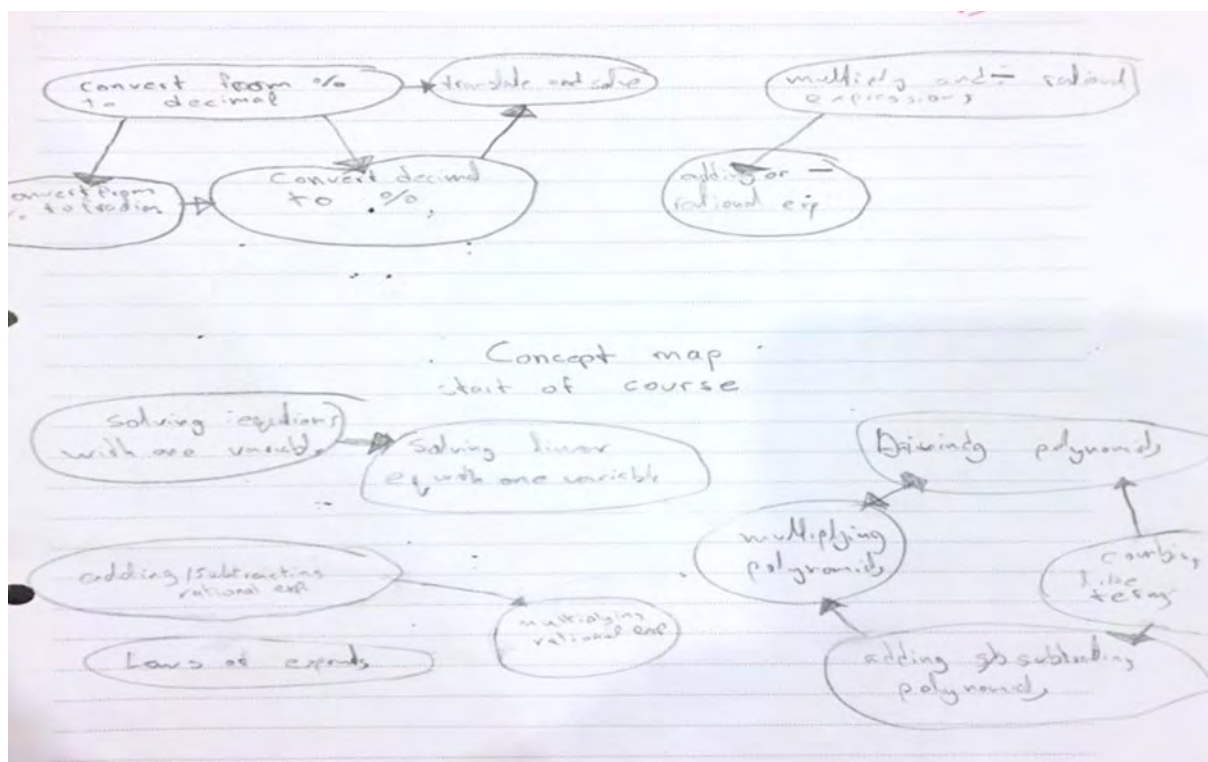 convert from %
to decimal
translate and solve
multiply and ÷ rational
expressions
convert from
% to
convert decimal
to %
adding or −
rational exp
Concept map
start of course
solving equations
with one variable
solving linear
eq with one variable
Dividing polynomids
multiplying
polynomids
combing
like
terms
adding/subtracting
rational exp
multiplying
rational exp
Laws of expents
adding subtracting
polynomids